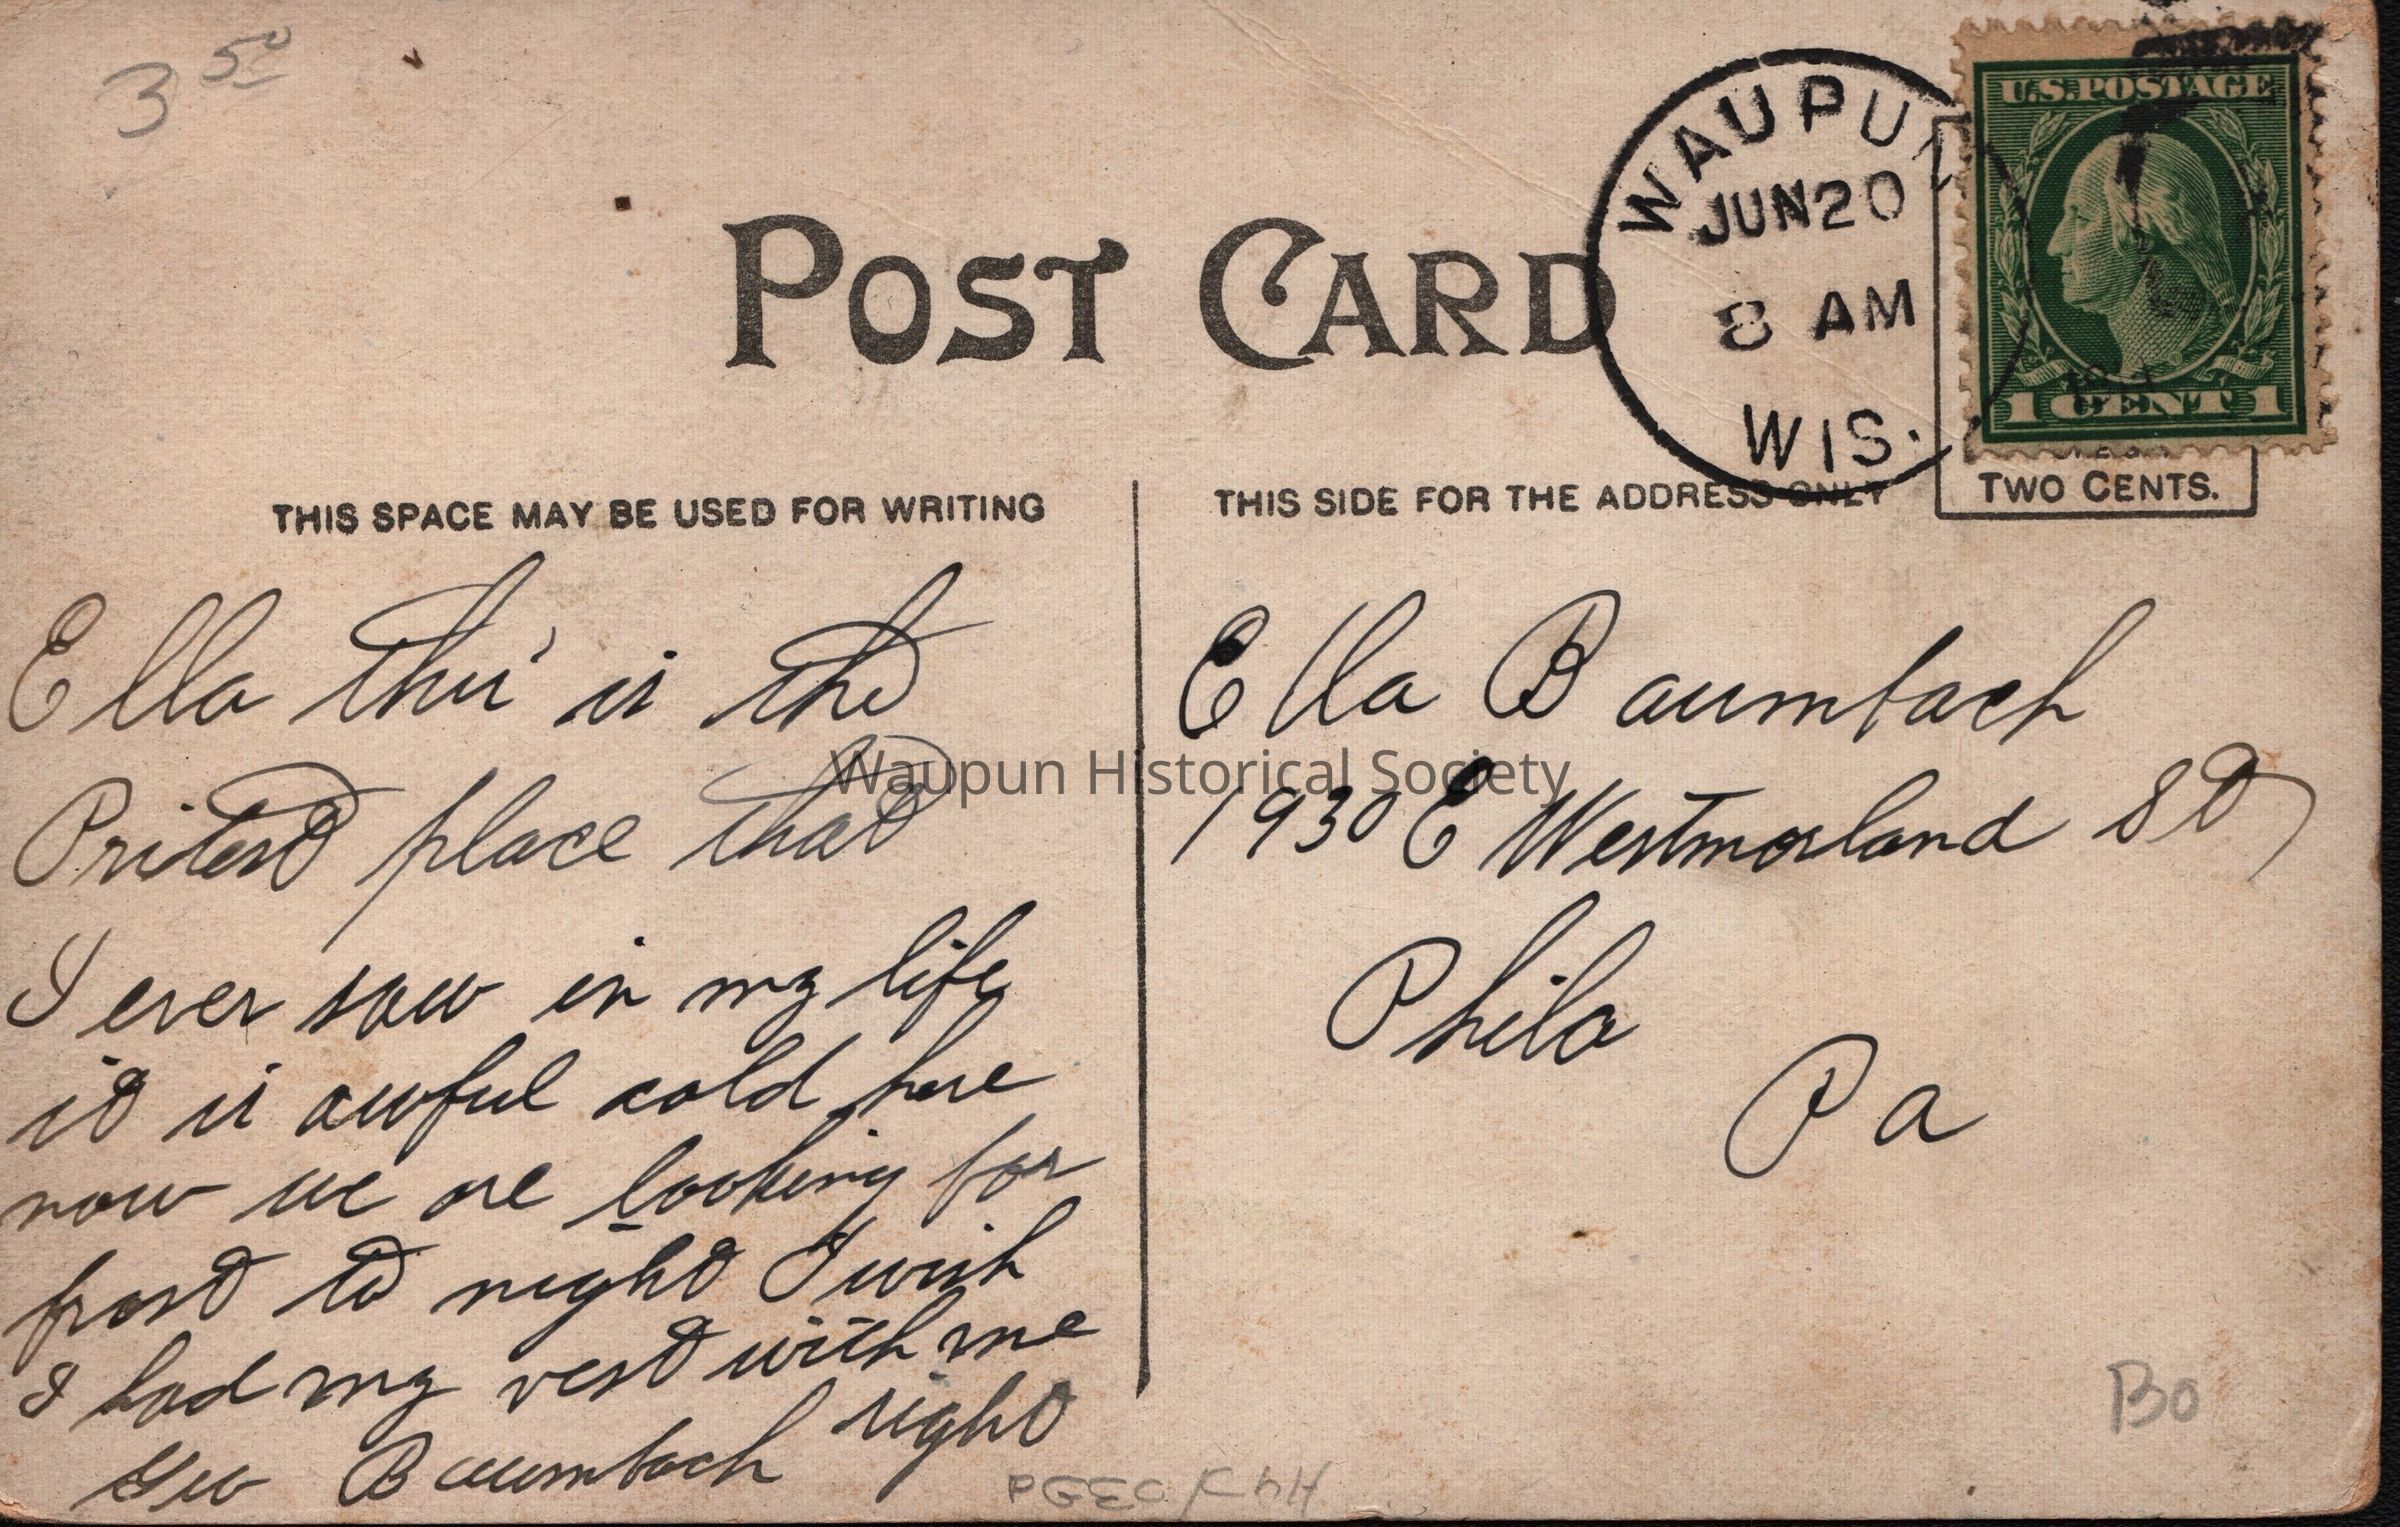 3 50
WAUPUN
JUN 20
8 AM
WIS.
U.S. POSTAGE
1 CENT 1
POST CARD
TWO CENTS.
THIS SPACE MAY BE USED FOR WRITING
Ella this is the
Pritest place that
I ever saw in my life
it is awful cold here
now we are looking for
frost to night I wish
I had my vest with me
right
Geo Baumbach
THIS SIDE FOR THE ADDRESS ONLY
Ella Baumbach
1930 E Westmorland St
Phila
Pa
Bo
Waupun Historical Society